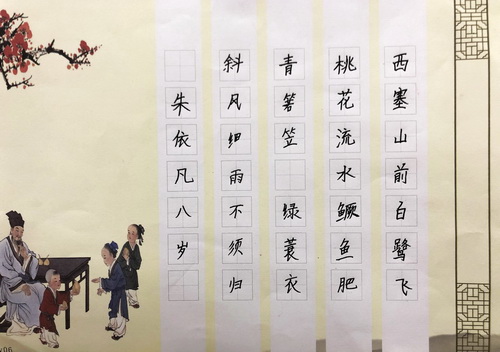 西塞山前白鹭飞
桃花流水鳜鱼肥
青箬笠
绿蓑衣
斜风细雨不须归
朱依凡八岁